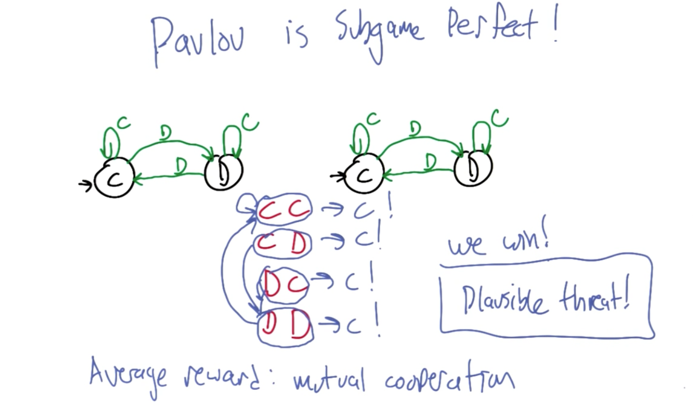 Pavlov is Subgame Perfect!
C D C C D C
C D D C D D
C C → C!
C D → C!
D C → C!
D D → C!
we win!
Plausible threat!
Average reward: mutual cooperation